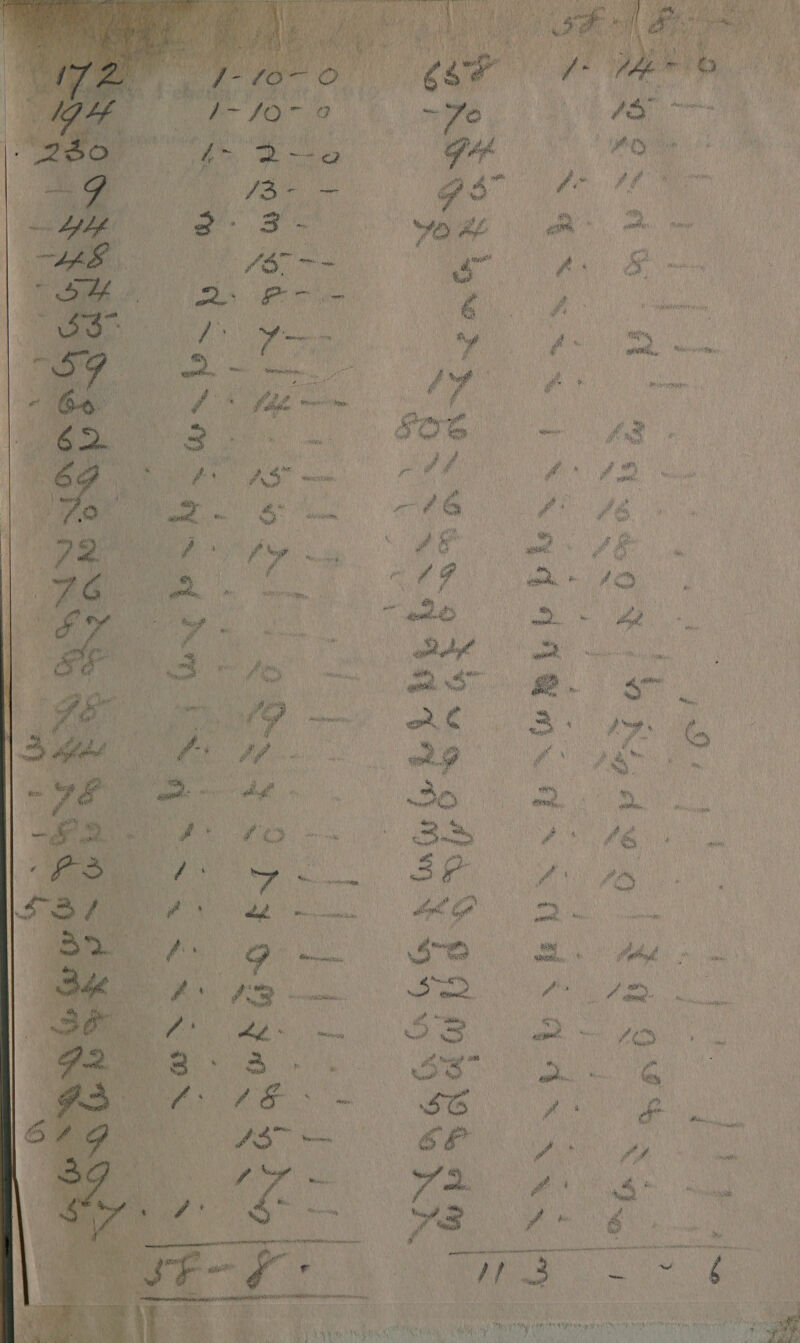 172 1-10-0
194 1-10-0
230 1-2-0
-9 13--
-44 3-3-
-48 15--
-54 2-8--
-55 1-7-
-59 2--
-60 1-14-
62 3--
69 1-15-
70 2-5-
72 1-17-
76 2--
87 7--
88 3-10-
98 -19-
344 1-11-
-78 2-4-
-82 1-10-
-83 1-7-
531 1-4-
32 1-9-
34 1-13-
38 1-4-
92 3-3-
93 1-18-
619 15-
39 17-
57 1-5-
58-8-
58-8-
658 1-14-0
-70 15-
94 10-
95 1-11-
704 2-2-
5 1-8-
6 1-
7 1-2-
17 1-
806 -13-
-11 1-12-
-16 1-16-
18 2-18-
-19 2-10-
-20 2-4-
24 2-
25 2-5-
26 3-17-6
29 1-15-
30 2-2-
33 1-16-
38 1-10-
49 2-
50 2-14-
52 1-12-
53 2-10-
55 2-6
56 1-8-
68 1-11-
72 1-5-
73 1-6-
113--6